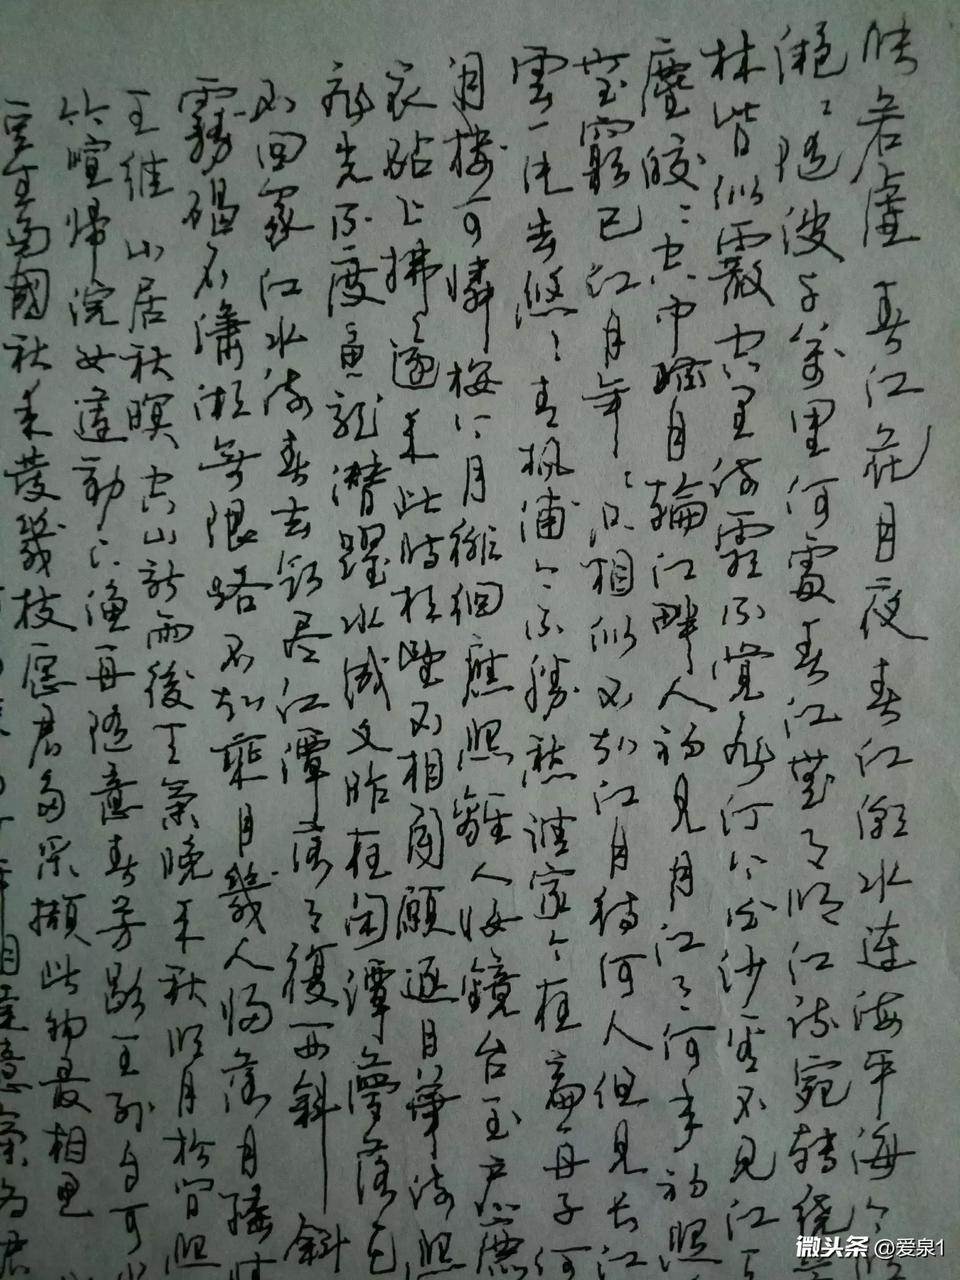 張若虛 春江花月夜 春江潮水連海平海上
灩灩隨波千萬里何處春江無月明江流宛轉繞
林皆似霰空里流霜不覺飛汀上白沙看不見江
塵皎皎空中孤月輪江畔人初見月江月何年初照
生窮已江月年年只相似不知江月待何人但見長江
雲一片去悠悠青楓浦上不勝愁誰家今夜扁舟子何
月樓可憐樓上月徘徊應照離人妝鏡台玉戶簾
衣砧上拂還來此時相望不相聞願逐月華流照
飛光不度魚龍潛躍水成文昨夜閑潭夢落花
不回家江水流春去欲盡江潭落月復西斜斜
霧碣石瀟湘無限路不知乘月幾人歸落月搖情
王維 山居秋暝 空山新雨後天氣晚來秋明月松間照
竹喧歸浣女蓮動下漁舟隨意春芳歇王孫自可
豆生南國秋來發幾枝愿君多采擷此物最相思
微头条 @爱泉1